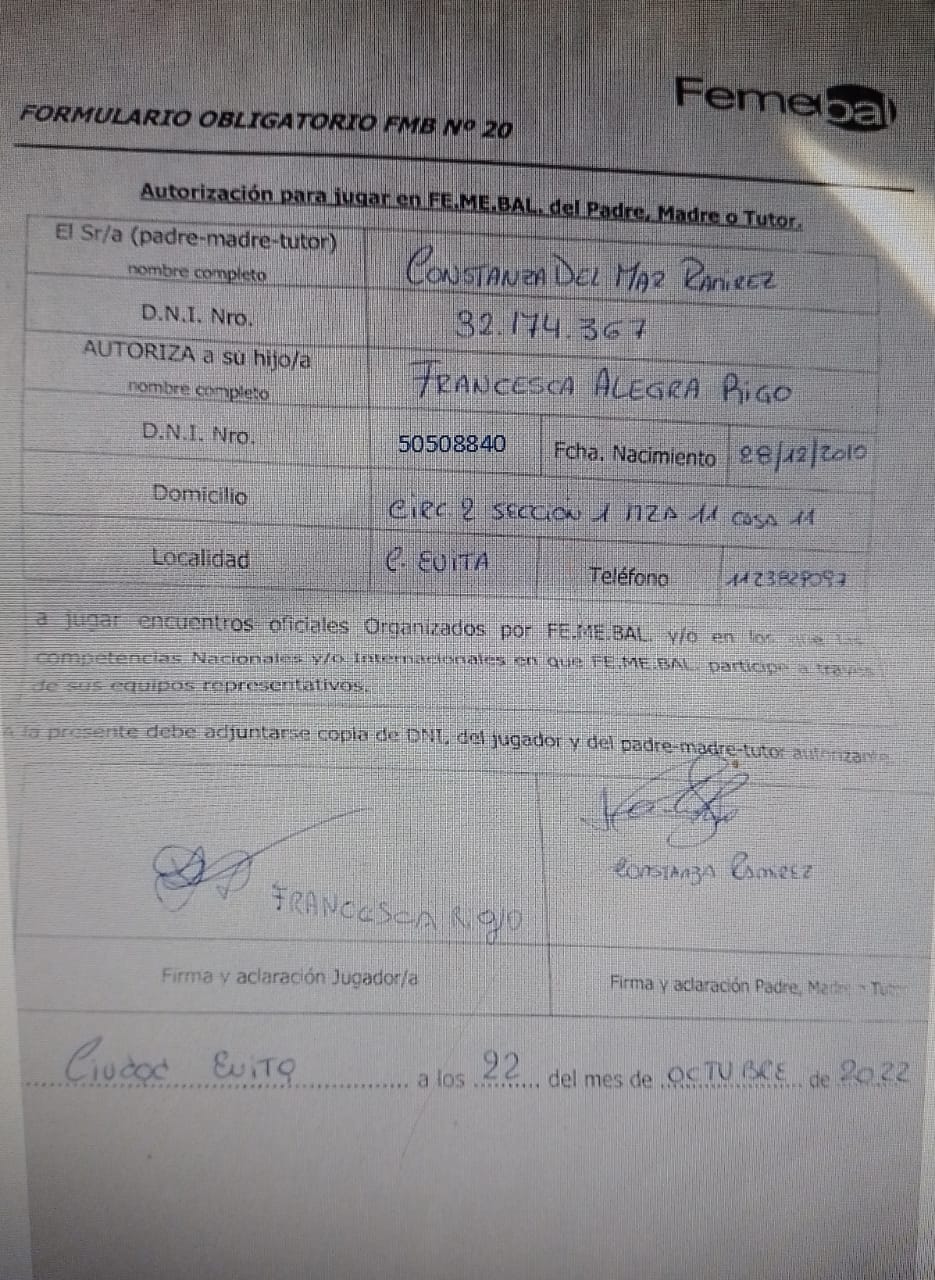 Femebal
FORMULARIO OBLIGATORIO FMB Nº 20
Autorización para jugar en FE.ME.BAL. del Padre, Madre o Tutor.
El Sr/a (padre-madre-tutor) nombre completo CONSTANZA DEL MAR RAMIREZ
D.N.I. Nro. 32.174.367
AUTORIZA a su hijo/a nombre completo FRANCESCA ALEGRA RIGO
D.N.I. Nro. 50508840 Fcha. Nacimiento 28/12/2010
Domicilio CIRC 2 SECCIÓN 1 MZA 11 CASA 11
Localidad C. EVITA Teléfono
a jugar encuentros oficiales Organizados por FE.ME.BAL. y/o en los que las
competencias Nacionales y/o Internacionales en que FE.ME.BAL. participe a través
de sus equipos representativos.
A la presente debe adjuntarse copia de DNI, del jugador y del padre-madre-tutor autorizante.
FRANCESCA Rigo
CONSTANZA RAMIREZ
Firma y aclaración Jugador/a
Firma y aclaración Padre, Madre o Tutor
Ciudad EVITA a los 22 del mes de OCTUBRE de 2022